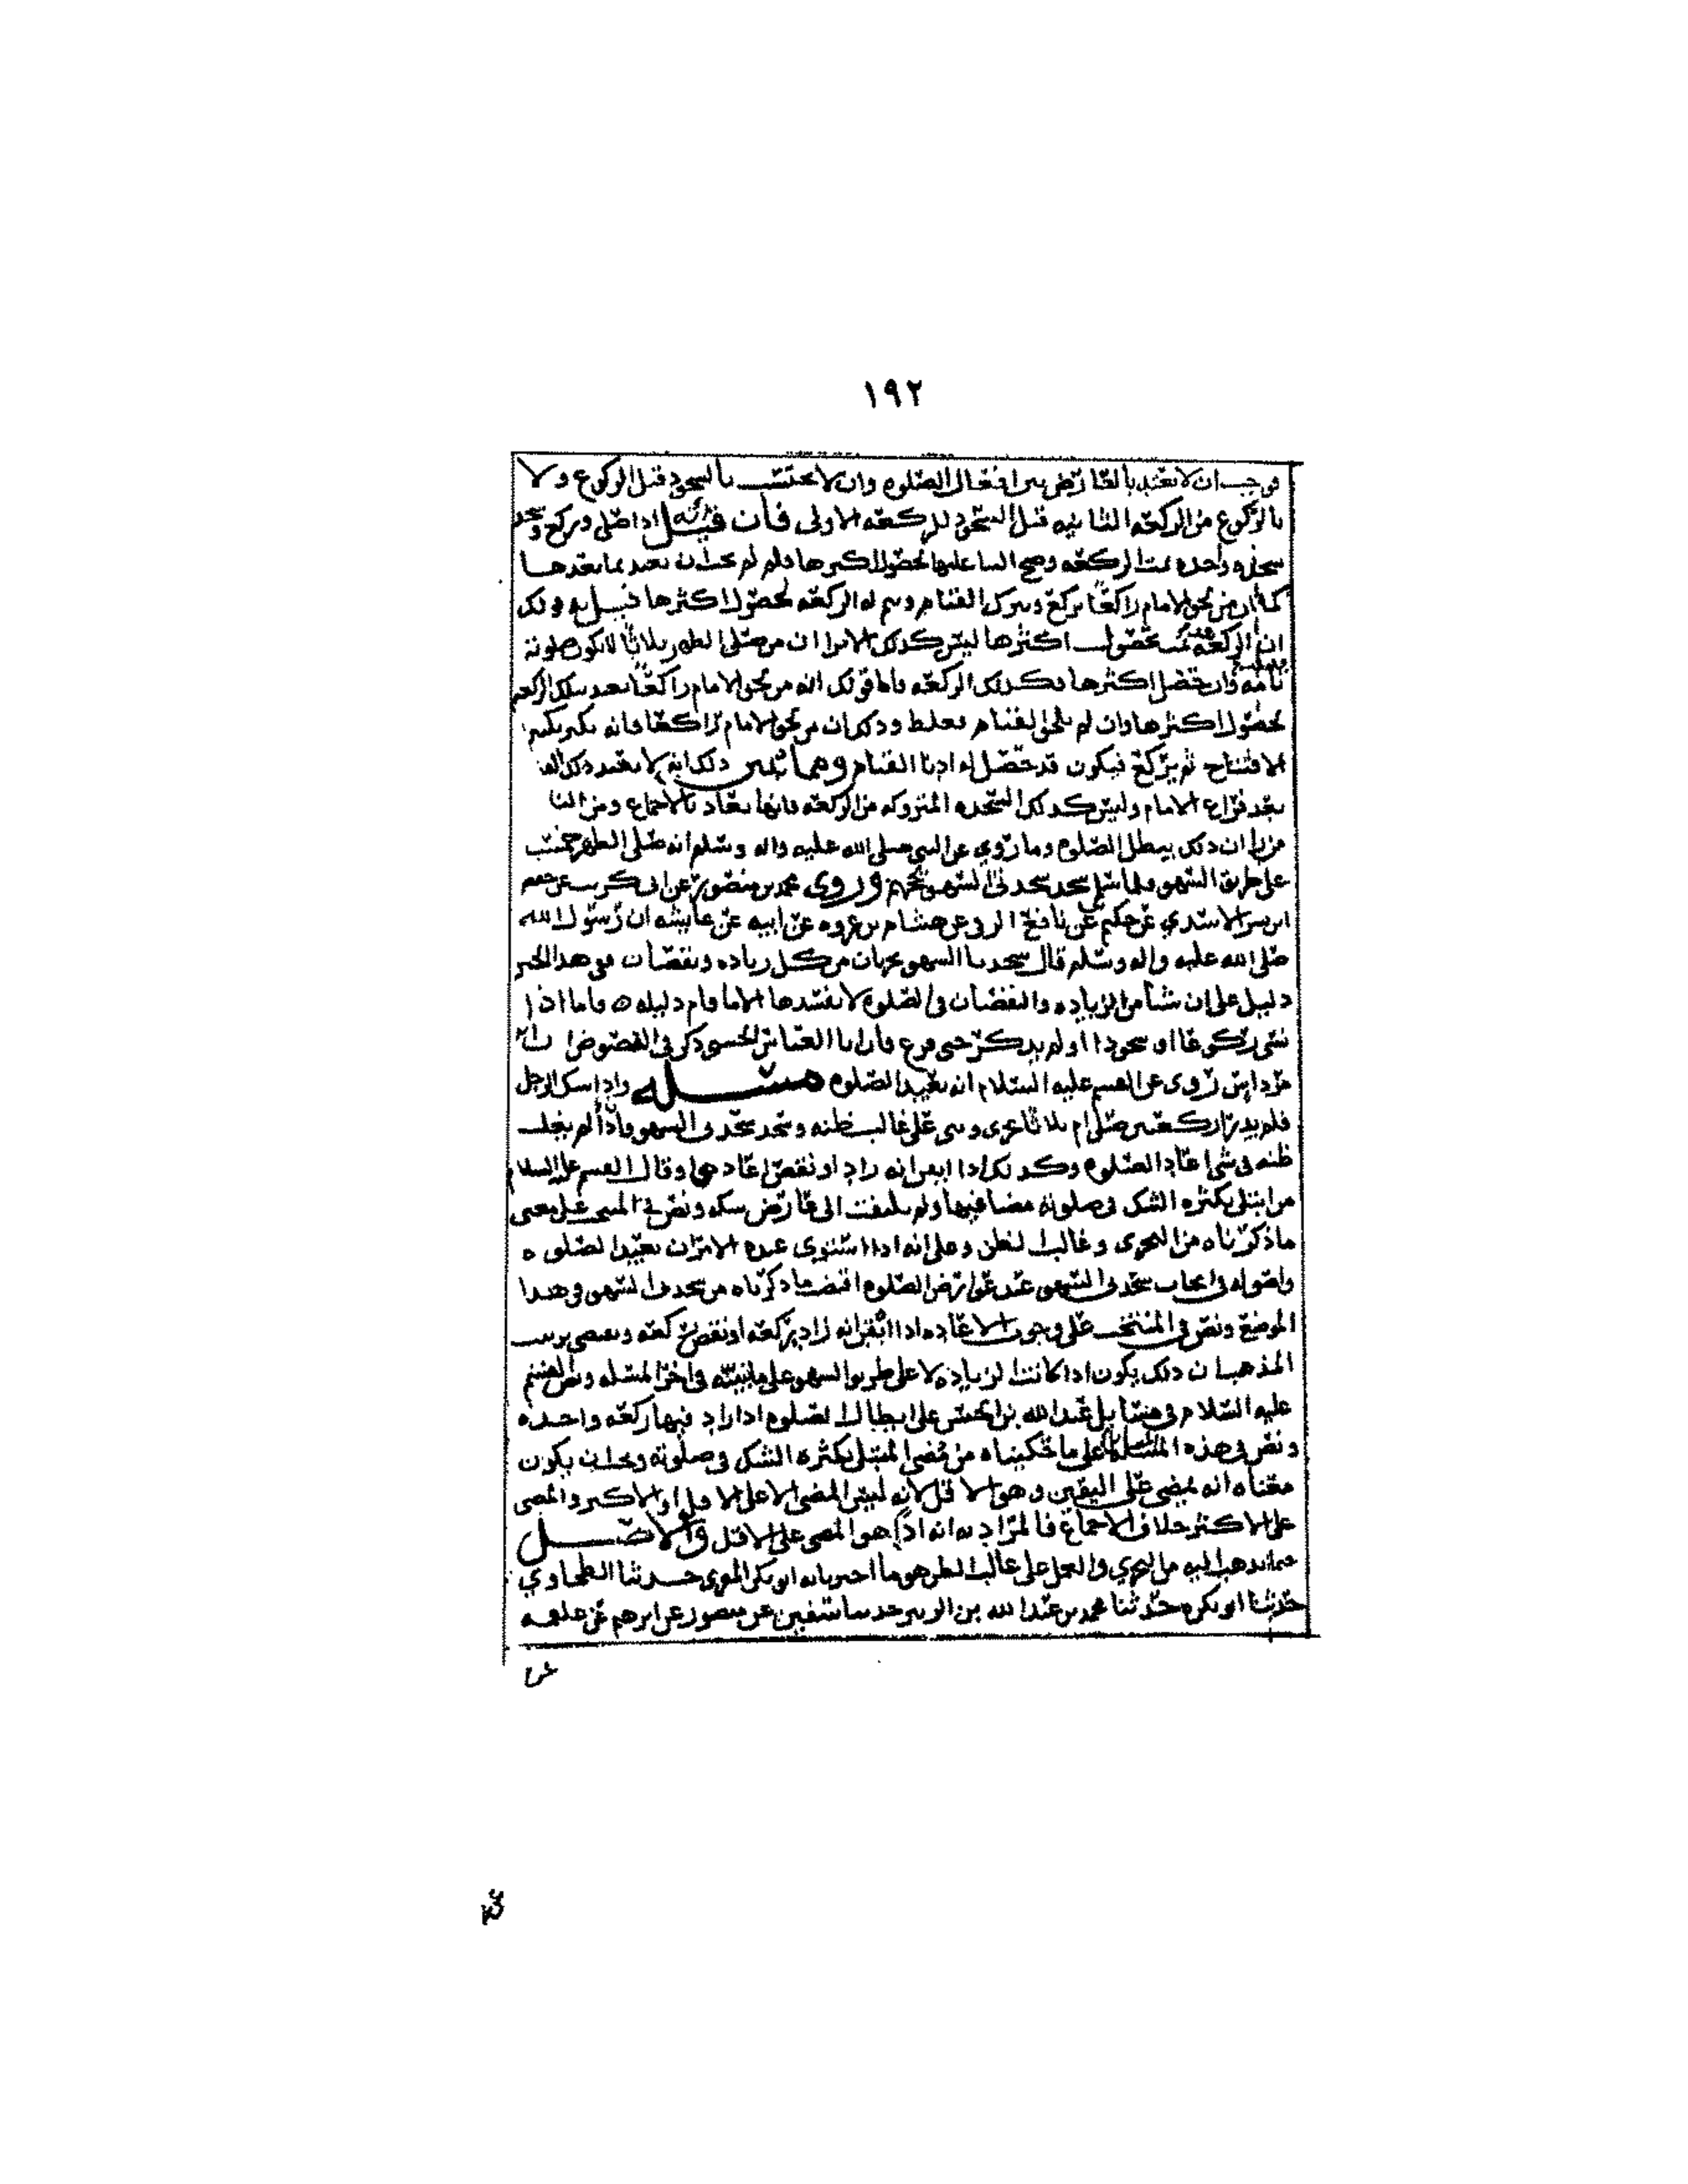 ١٩٢
فوجب ان لا يعتد بالعارض بين افعال الصلوه وان لا يحتسب بالسجود قبل الركوع ولا
بالركوع من الركعه الثانيه قبل السجود للركعه الاولى فان قيل انه اذا صلى وركع وسجد
سجده واحده تمت الركعه وصح البنا عليها لحصول اكثرها فلم لم يجب ان يعتد بما بعدها
كما ان من لحق الامام راكعًا يركع ويترك القيام وتتم له الركعه لحصول اكثرها قيل له قولك
ان الركعه تمت بحصول اكثرها ليس كذلك الا ترا ان من صلى الظهر ثلاثًا لا تكون صلوته
تامه وان حصل اكثرها فكذلك الركعه فاما قولك انه من لحق الامام راكعًا يعتد بتلك الركعه
لحصول اكثرها وان لم يلحق القيام فغلط وذلك ان من لحق الامام راكعًا فانه يكبر تكبير
الافتتاح ثم يركع فيكون قد حصل له ادنا القيام ومما يبين ذلك انه لا يعتد ذلك
بعد فراغ الامام وليس كذلك السجده المتروكه من الركعه فانها تعاد بالاجماع ومن النا
من را ان ذلك يبطل الصلوه وما روي عن النبي صلى الله عليه واله وسلم انه صلى الظهر خمسًا
على طريق السهو فلما سلم سجد سجدتى السهو وروى محمد بن منصور عن ابى كريب عن حفص
ابن بشر الاسدي عن حكيم عن نافع عن هشام بن عروه عن ابيه عن عايشه ان رسول الله
صلى الله عليه واله وسلم قال سجدتا السهو تجزيان من كل زياده ونقصان ففى هذا الخبر
دليل على ان شيأ من الزياده والنقصان فى الصلوه لا يفسدها الا ما قام دليله ه فاما اذا
نسى ركوعًا او سجودا او لم يذكر حتى فرغ فان ابا العباس الحسنى ذكر فى النصوص ان
مرداس روى عن القسم عليه السلام انه يعيد الصلوه مسئله واذا شك الرجل
فلم يدر اركعتين صلى ام ثلاثا تحرى وبنى على غالب ظنه وسجد سجدتى السهو واذا لم يغلب
ظنه فى شى اعاد الصلوه وكذلك اذا ايقن انه زاد او نقص اعادها وقال القسم عليه السلام
من ابتلى بكثره الشك فى صلوته مضا فيها ولم يلتفت الى عارض شكه ونص فى المنتخب على معنى
ما ذكرناه من التحرى وغالب الظن وعلى انه اذا استوى عنده الامران يعيد الصلوه
واصوله فى ايجاب سجدتى السهو عند عوارض الصلوه اقتضت ما ذكرناه من سجدتى السهو فى هذا
الموضع ونص فى المنتخب على وجوب الاعاده اذا ايقن انه زاد ركعه او نقص ركعه ويقتضى ترتيب
المذهب ان ذلك يكون اذا كانت الزياده لا على طريق السهو على ما نبينه فى اخر المسئله ونص القسم
عليه السلام فى مسايل عبدالله بن الحسن على ابطال الصلوه اذا زاد فيها ركعه واحده
ونص فى هذه المسايل على ما حكيناه من مُضى المبتلى بكثره الشك فى صلوته ويجب ان يكون
معناه انه يمضى على اليقين وهو الاقل لانه ليس المضى الا على الاقل او الاكثر والمضى
على الاكثر خلاف الاجماع فالمراد به انه اذًا هو المضى على الاقل والاصل
فيما نذهب اليه من التحري والعمل على غالب الظن هو ما اخبرنا به ابو بكر المقرى حدثنا الطحاوي
حدثنا ابو بكره حدثنا محمد بن عبدالله بن الزبير حدثنا سفين عن منصور عن ابرهيم عن علقمه
عن